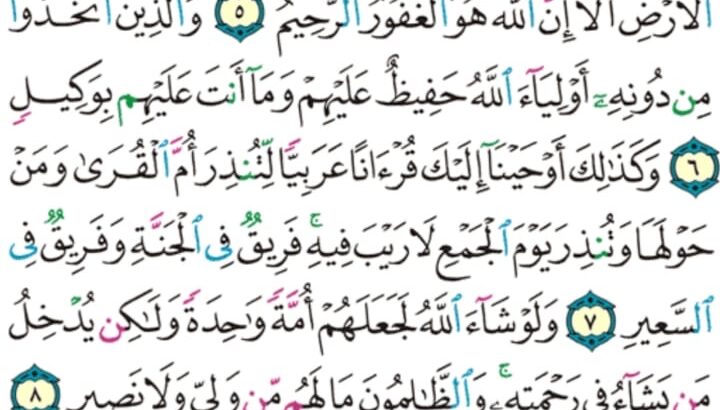 ٱلۡأَرۡضِ أَلَآ إِنَّ ٱللَّهَ هُوَ ٱلۡغَفُورُ ٱلرَّحِيمُ ٥ وَٱلَّذِينَ ٱتَّخَذُواْ
مِن دُونِهِۦٓ أَوۡلِيَآءَ ٱللَّهُ حَفِيظٌ عَلَيۡهِمۡ وَمَآ أَنتَ عَلَيۡهِم بِوَكِيلٖ
٦ وَكَذَٰلِكَ أَوۡحَيۡنَآ إِلَيۡكَ قُرۡءَانًا عَرَبِيّٗا لِّتُنذِرَ أُمَّ ٱلۡقُرَىٰ وَمَنۡ
حَوۡلَهَا وَتُنذِرَ يَوۡمَ ٱلۡجَمۡعِ لَا رَيۡبَ فِيهِۚ فَرِيقٞ فِي ٱلۡجَنَّةِ وَفَرِيقٞ فِي
ٱلسَّعِيرِ ٧ وَلَوۡ شَآءَ ٱللَّهُ لَجَعَلَهُمۡ أُمَّةٗ وَٰحِدَةٗ وَلَٰكِن يُدۡخِلُ
مَن يَشَآءُ فِي رَحۡمَتِهِۦۚ وَٱلظَّٰلِمُونَ مَا لَهُم مِّن وَلِيّٖ وَلَا نَصِيرٍ ٨